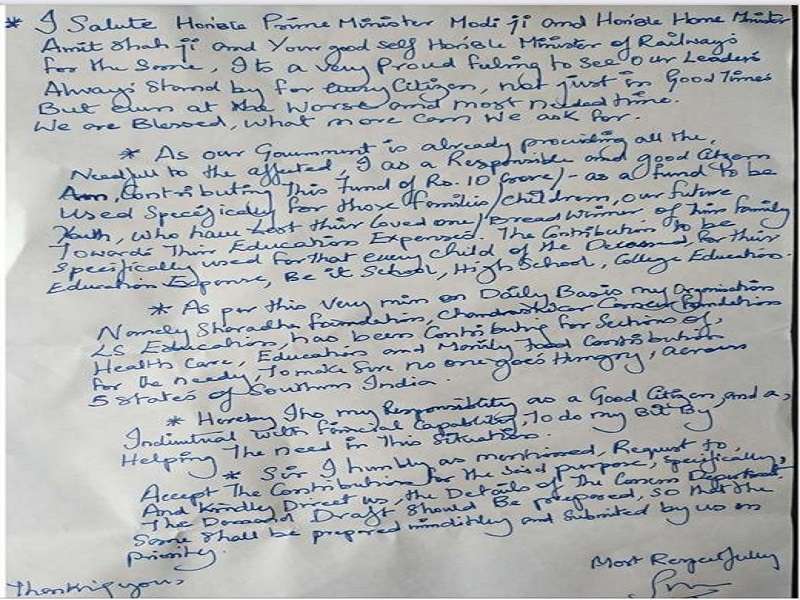 * I Salute Hon'ble Prime Minister Modi ji and Hon'ble Home Minister
Amit Shah ji and Your good self Hon'ble Minister of Railways
for the Same, Its a very Proud feeling to see our Leaders
Always Stand by for every Citizen, not just in Good Times
But even at the Worse and most needed time.
We are Blessed, What more can We ask for.
* As our Government is already providing all the,
Needfull to the affected, I as a Responsible and good Citizen
Am, Contributing This Fund of Rs. 10 Crore/- as a fund to be
Used Specifically for those families/Children, our future
Youth, who have Lost their Loved one/Bread Winner of Their Family
Towards Their Education Expenses. The Contribution to be
Specifically used for that every child of the Deceased for their
Education Expense, Be it School, High School, College Education.
* As per this Very min on Daily Basis my Organisation
Namely Sharadha Foundation, Chandrashekar Cancer Foundation
LS Education, has been Contributing for Sections of,
Health Care, Education and Mainly food Contribution
for the Needy, To make Sure no one goes Hungry, across
5 States of Southern India.
* Hereby Its my Responsibility as a Good Citizen, and a,
Individual with Financial Capability, To do my Bit By
Helping The Need in This Situation.
* Sir I humbly as mentioned, Request to,
Accept The Contribution for the said purpose, Specifically,
And Kindly Direct us, the Details of The Concern Department.
The Demand Draft Should Be prepared, so that the
Same shall be prepared immditley and Submitted by us on
priority.
Thanking you,
Most Respectfully